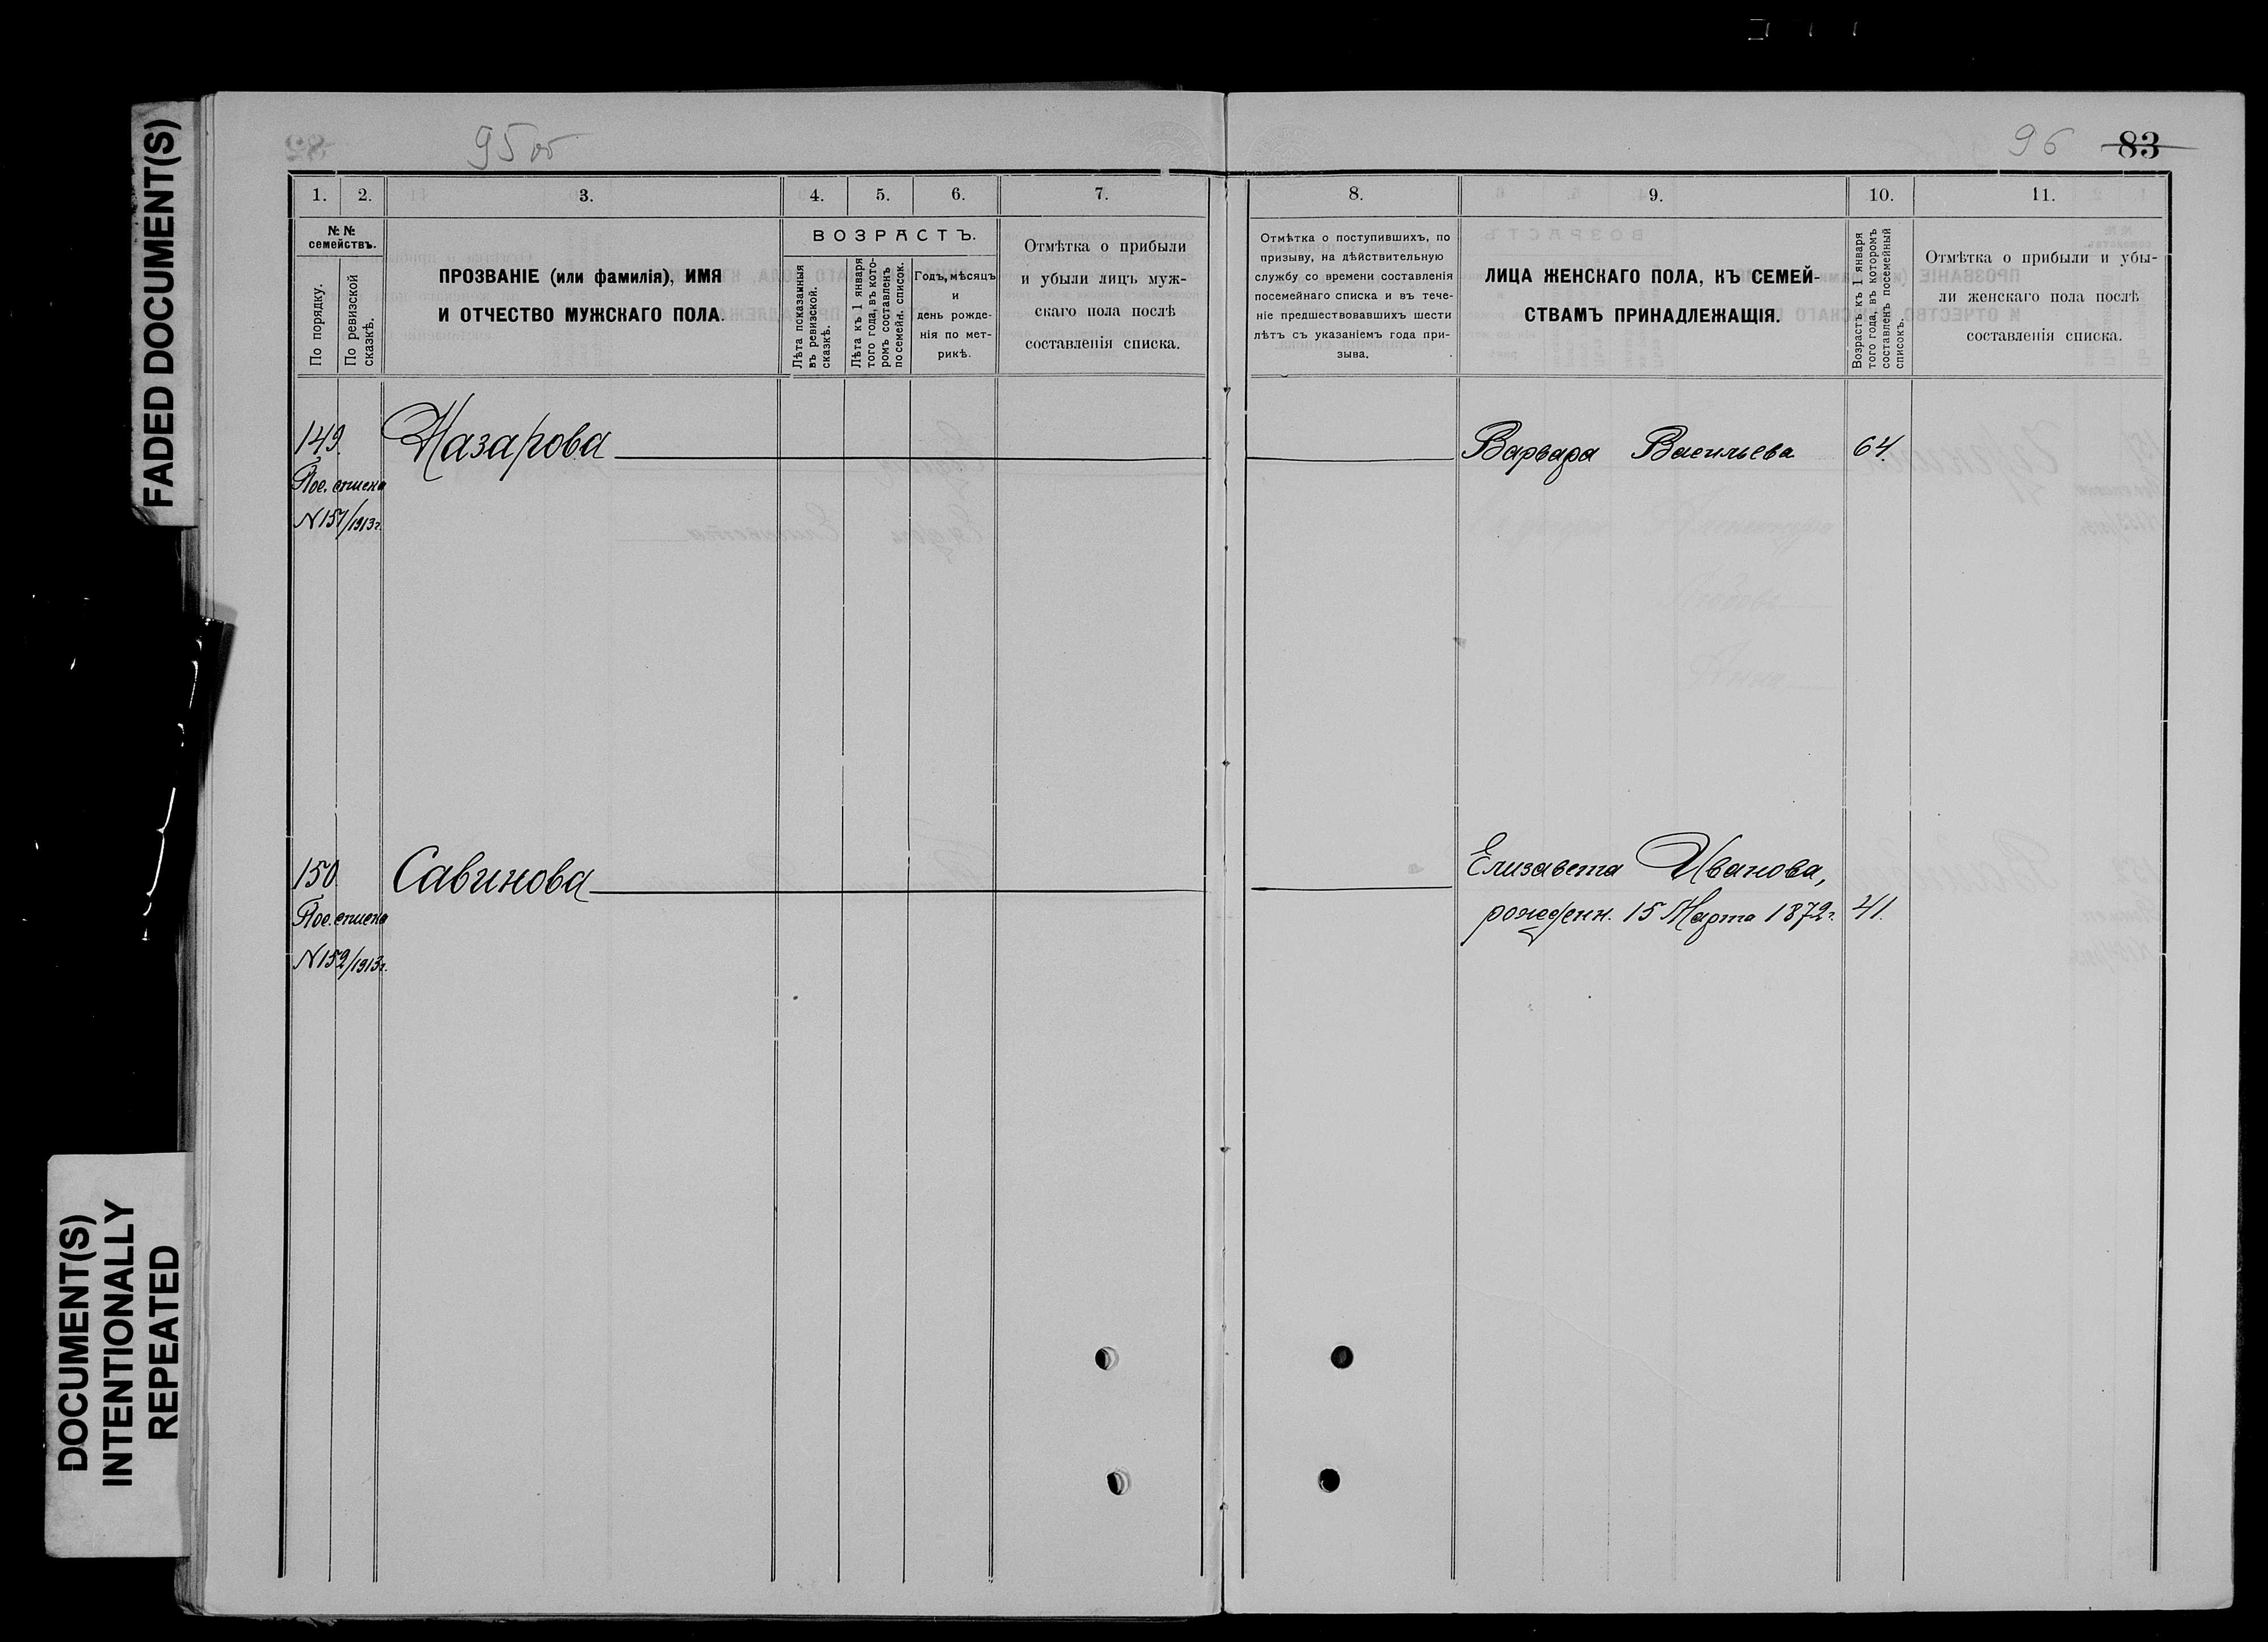 FADED DOCUMENT(S)
DOCUMENT(S)
INTENTIONALLY
REPEATED
95 об
96 83
1. 2. 3. 4. 5. 6. 7. 8. 9. 10. 11.
№№
семействъ.
По порядку.
По ревизской
сказкѣ.
ПРОЗВАНІЕ (или фамилія), ИМЯ
И ОТЧЕСТВО МУЖСКАГО ПОЛА.
ВОЗРАСТЪ.
Лѣта показанныя
въ ревизской.
сказкѣ.
Лѣта къ 1 января
того года, въ кото-
ромъ составленъ
посемейн. список.
Годъ, мѣсяцъ
и
день рожде-
нія по мет-
рикѣ.
Отмѣтка о прибыли
и убыли лицъ муж-
скаго пола послѣ
составленія списка.
Отмѣтка о поступившихъ, по
призыву, на дѣйствительную
службу со времени составленія
посемейнаго списка и въ тече-
ніе предшествовавшихъ шести
лѣтъ съ указаніемъ года при-
зыва.
ЛИЦА ЖЕНСКАГО ПОЛА, КЪ СЕМЕЙ-
СТВАМЪ ПРИНАДЛЕЖАЩІЯ.
Возрастъ къ 1 января
того года, въ которомъ
составленъ посемейный
списокъ.
Отмѣтка о прибыли и убы-
ли женскаго пола послѣ
составленія списка.
149. Назарова Варвара Васильева 64.
Пос. списка
N 151/1913г.
150. Савинова Елизавета Иванова,
рожденн. 15 Марта 1872г. 41.
Пос. списка
N 152/1913г.